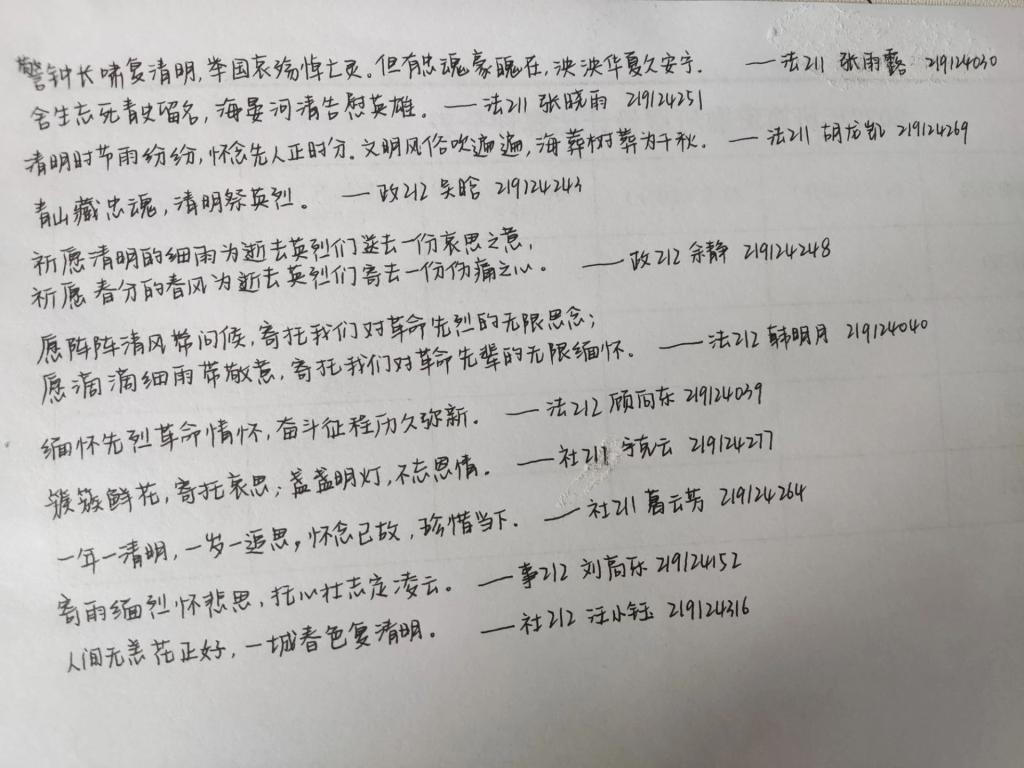 警钟长啸复清明，举国哀殇悼亡灵。但有忠魂豪魄在，泱泱华夏久安宁。 ——法211 张雨露 219124030
舍生忘死青史留名，海晏河清告慰英雄。——法211 张晓雨 219124251
清明时节雨纷纷，怀念先人正时分。文明风俗吹遍遍，海葬树葬为千秋。——法211 胡龙凯 219124269
青山藏忠魂，清明祭英烈。 ——政212 吴晗 219124243
祈愿清明的细雨为逝去英烈们送去一份哀思之意，
祈愿春分的春风为逝去英烈们寄去一份伤痛之心。 ——政212 余静 219124248
愿阵阵清风带问候，寄托我们对革命先烈的无限思念；
愿滴滴细雨带敬意，寄托我们对革命先辈的无限缅怀。 ——法212 韩明月 219124040
缅怀先烈革命情怀，奋斗征程历久弥新。 ——法212 顾向东 219124039
簇簇鲜花，寄托哀思；盏盏明灯，不忘恩情。 ——社211 克云 219124277
一年一清明，一岁一追思，怀念已故，珍惜当下。 ——社211 葛云芳 219124264
寄雨缅烈怀悲思，托心壮志定凌云。 ——事212 刘高乐 219124152
人间无恙花正好，一城春色复清明。 ——社212 汪小钰 219124316